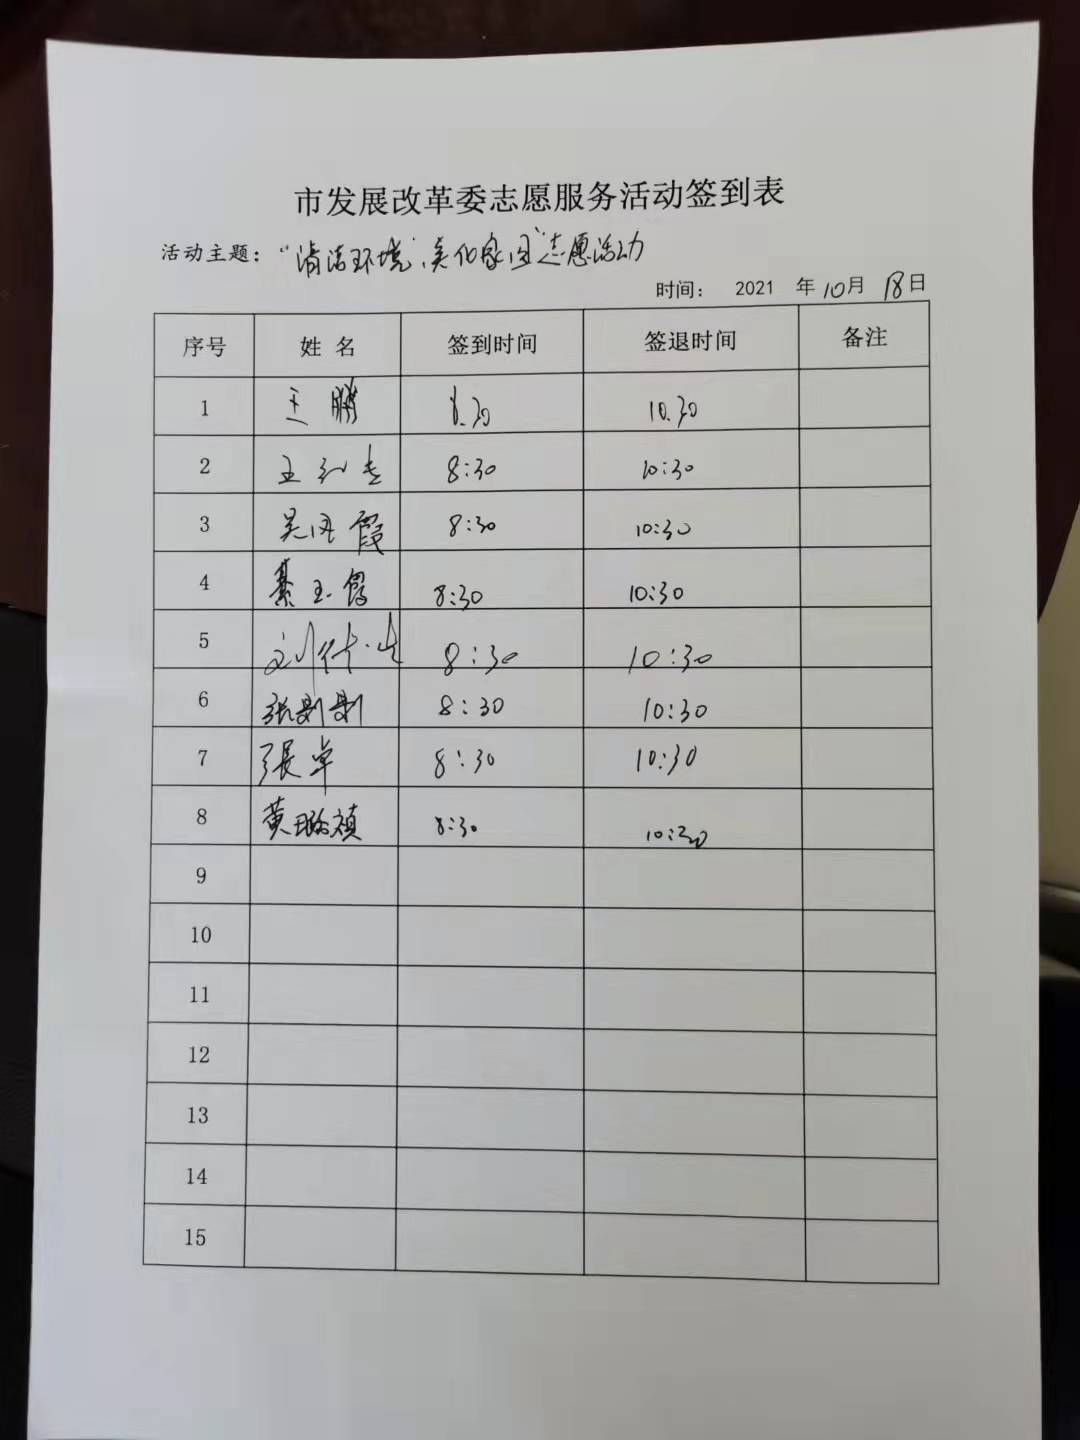 市发展改革委志愿服务活动签到表
活动主题："清洁环境，美化家园"志愿活动
时间： 2021 年10月18日
序号 姓 名 签到时间 签退时间 备注
1 王鹏 8.30 10.30
2 王 8:30 10:30
3 吴凤霞 8:30 10:30
4 綦玉霞 8:30 10:30
5 刘 8:30 10:30
6 张 8:30 10:30
7 张卓 8:30 10:30
8 黄璐禛 8:30 10:30
9
10
11
12
13
14
15